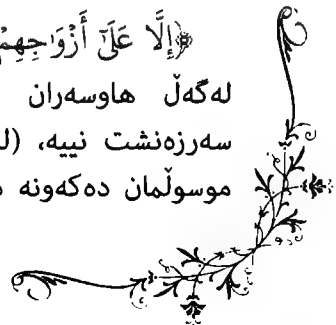 ﴿إِلَّا عَلَىٰٓ أَزْوَٰجِهِمْ
لەگەڵ هاوسەران
سەرزەنشت نییە، (ل
موسوڵمان دەکەونە